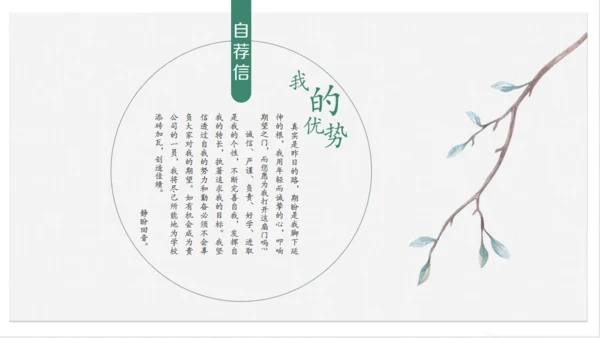 自荐信
我的优势
真实是昨日的路，期盼是我脚下延
伸的根，我用年轻而诚挚的心，叩响
期望之门，而您愿为我打开这扇门吗？
诚信、严谨、负责、好学、进取
是我的个性，不断完善自我，发挥自
我的特长，执著追求我的目标。我坚
信透过自我的努力和勤奋必须不会辜
负大家对我的期望。如有机会成为贵
公司的一员，我将尽己所能地为学校
添砖加瓦，创造佳绩。
静盼回音。